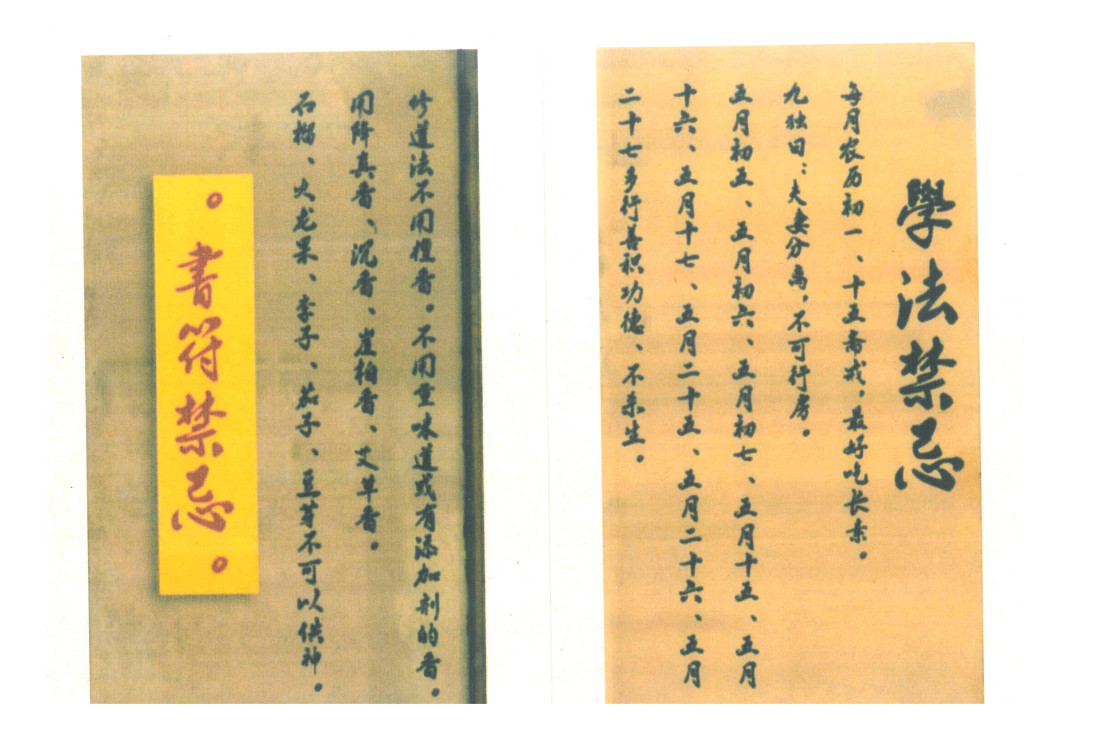 學法禁忌
每月农历初一、十五斋戒，最好吃长素。
九独日：夫妻分离，不可行房。
五月初五、五月初六、五月初七、五月十五、五月
十六、五月十七、五月二十五、五月二十六、五月
二十七多行善积功德、不杀生。
修道法不用檀香。不用重味道或有添加剂的香。
用降真香、沉香、崖柏香、艾草香。
石榴、火龙果、李子、茄子、豆芽不可以供神。
。書符禁忌。